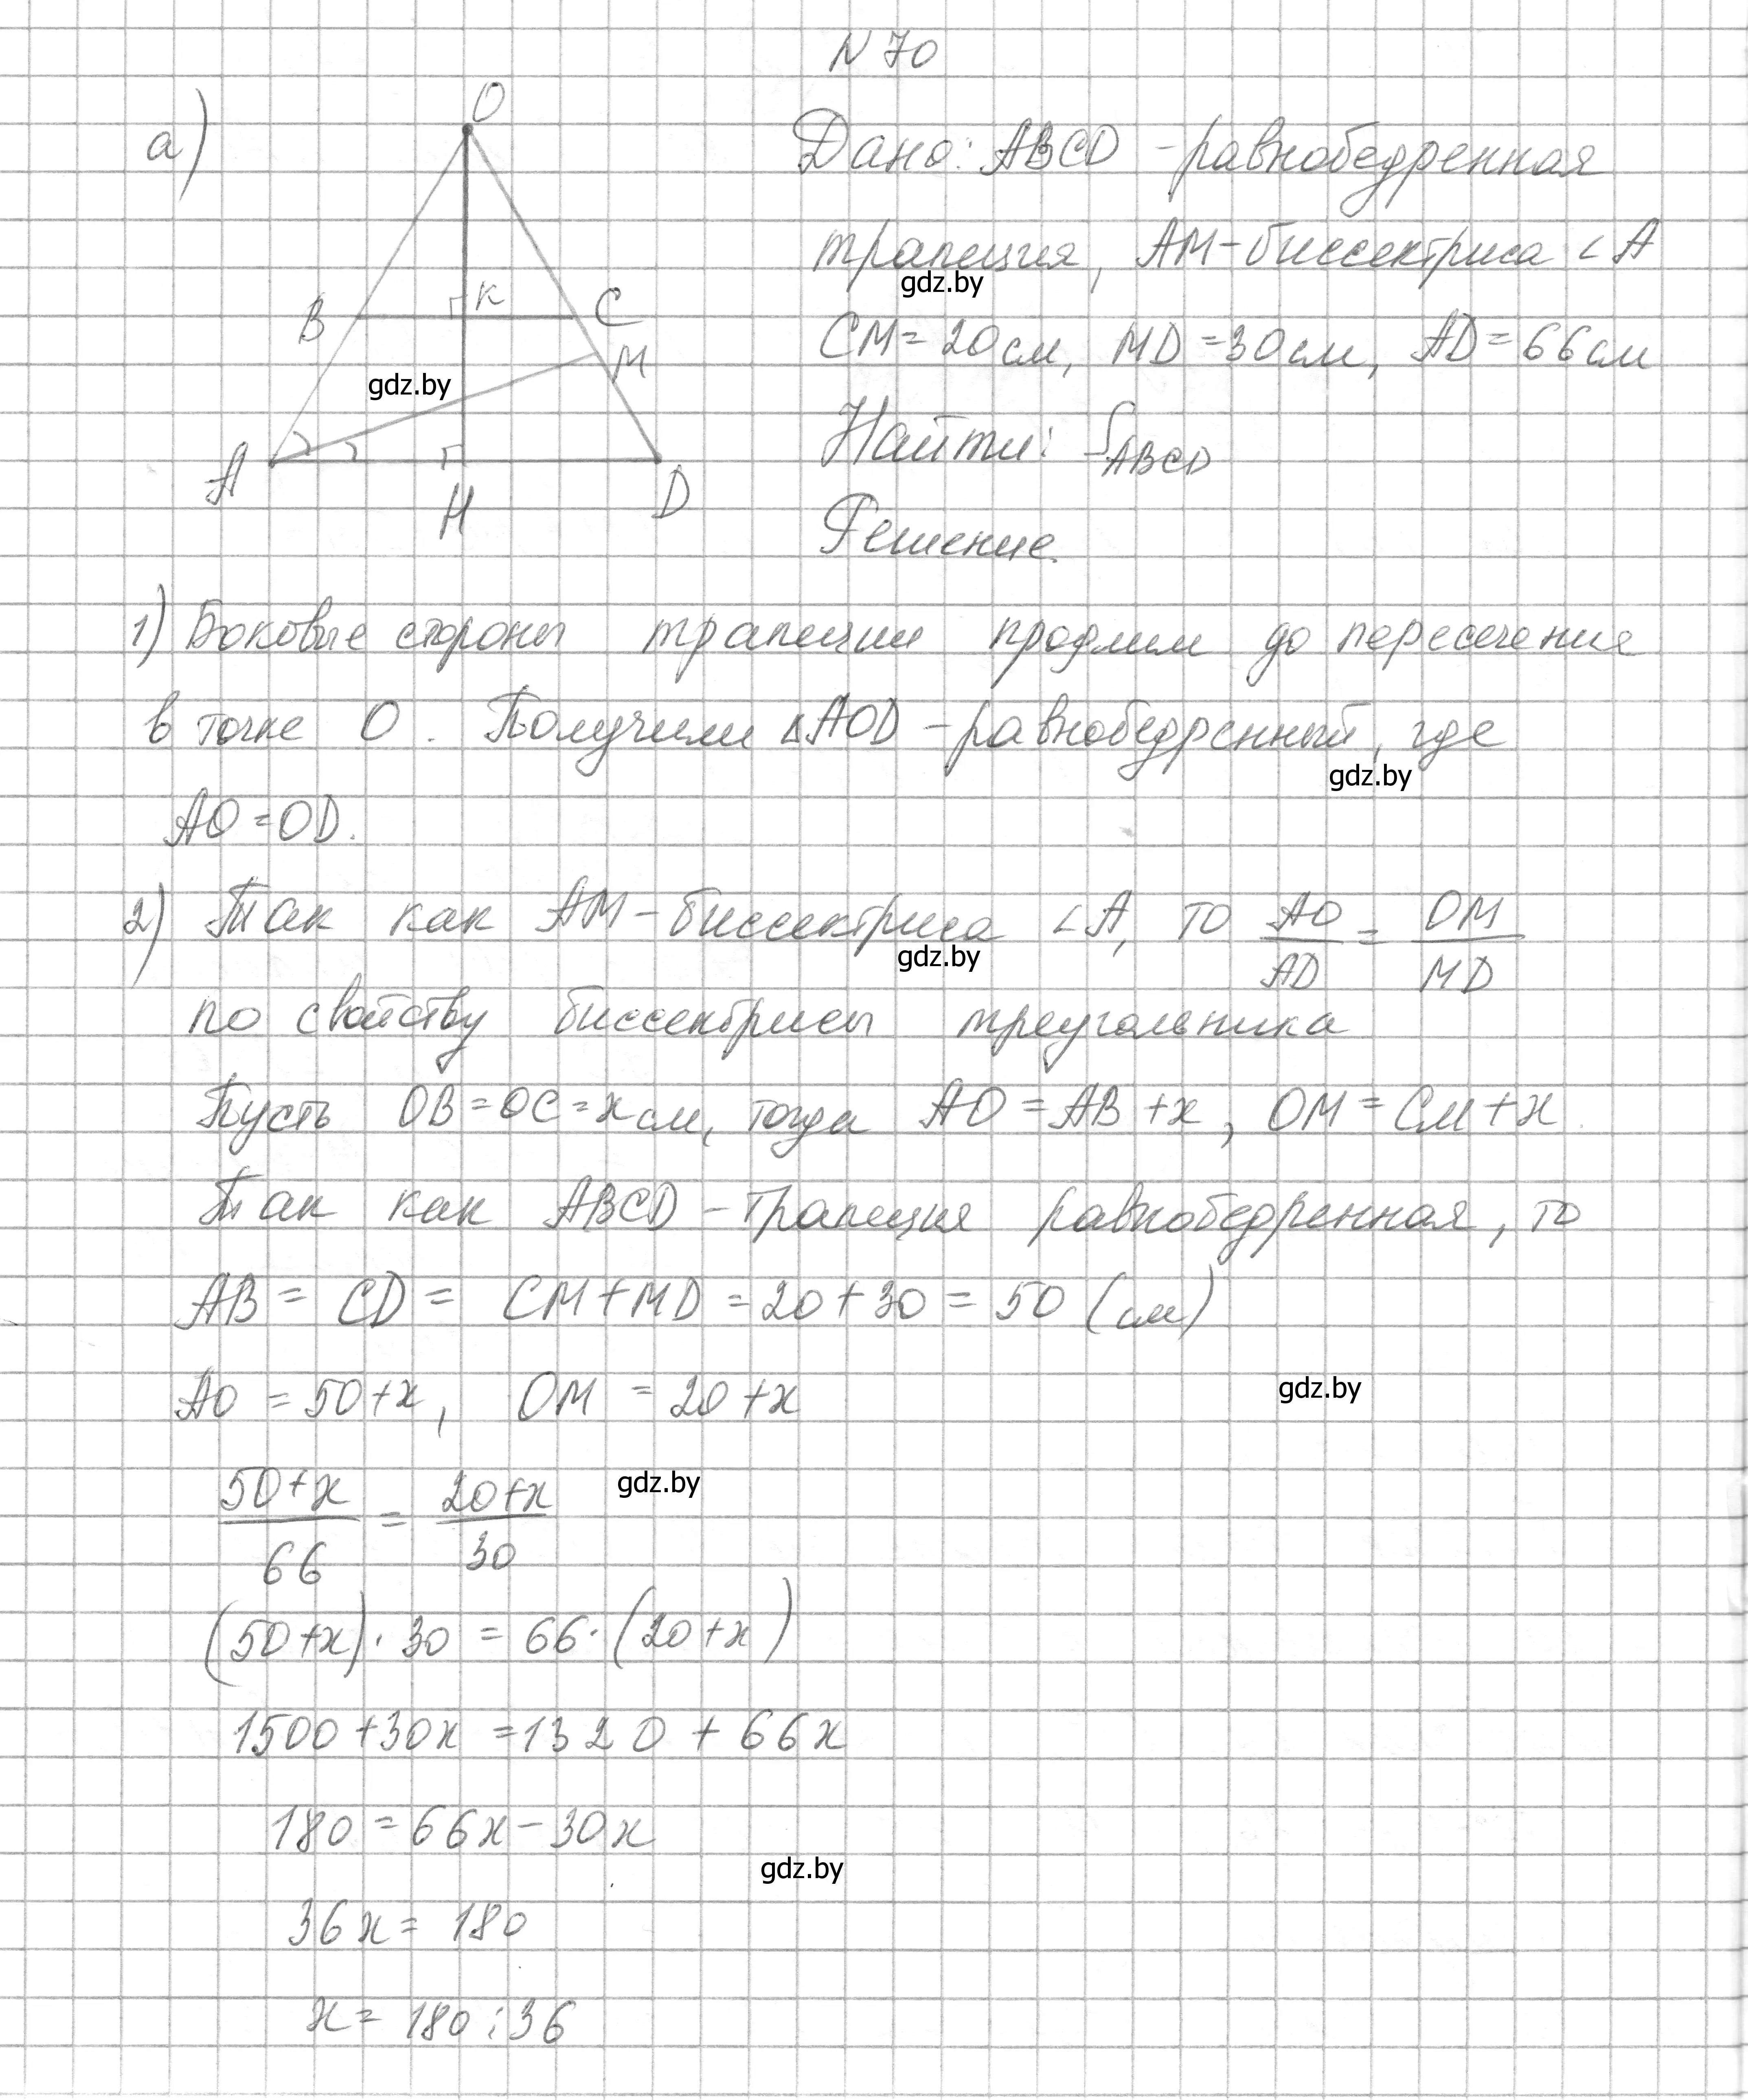 N 70
а)
O
B
K
C
M
A
H
D
gdz.by
Дано: ABCD - равнобедренная
трапеция, AM - биссектриса ∠A
gdz.by
CM = 20 см, MD = 30 см, AD = 66 см
Найти: S_ABCD
Решение.
1) Боковые стороны трапеции продлим до пересечения
в точке O. Получили △AOD - равнобедренный, где
gdz.by
AO = OD.
2) Так как AM - биссектриса ∠A, то AO/AD = OM/MD
gdz.by
по свойству биссектрисы треугольника
Пусть OB = OC = x см, тогда AO = AB + x, OM = CM + x.
Так как ABCD - трапеция равнобедренная, то
AB = CD = CM + MD = 20 + 30 = 50 (см)
AO = 50 + x, OM = 20 + x
gdz.by
(50 + x)/66 = (20 + x)/30
gdz.by
(50 + x) · 30 = 66 · (20 + x)
1500 + 30x = 1320 + 66x
180 = 66x - 30x
gdz.by
36x = 180
x = 180 : 36